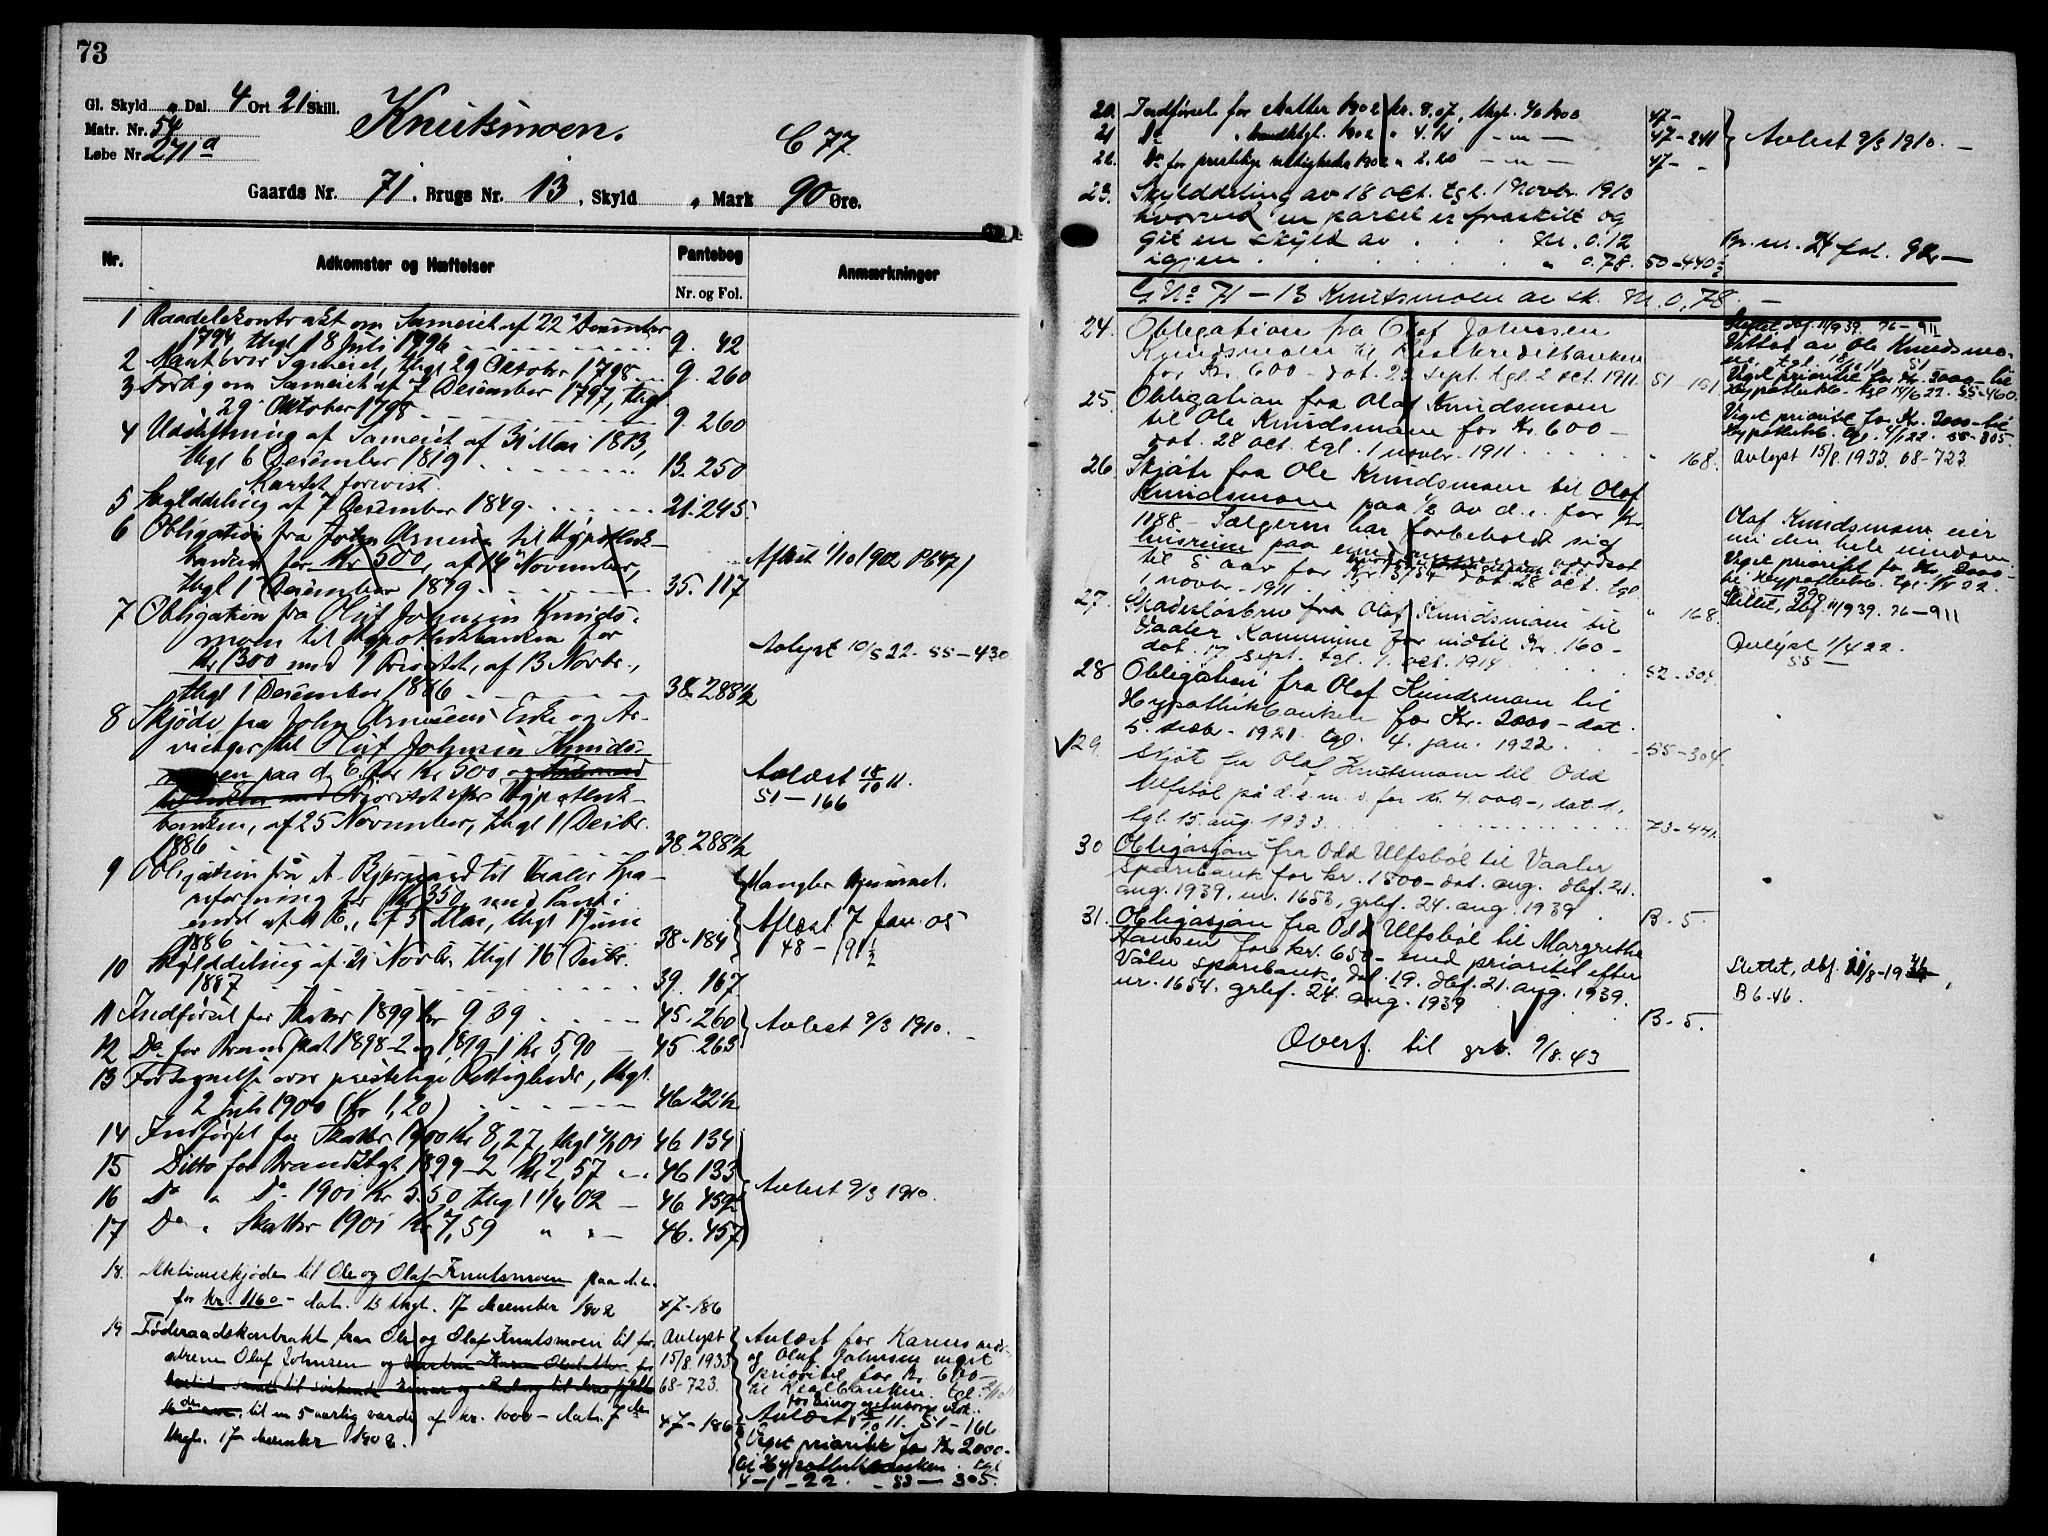 73
Gl. Skyld „ Dal. 4 Ort 21 Skill.
Matr. Nr. 54
Løbe Nr. 271a
Knutsmoen.
C 77
Gaards Nr. 71, Brugs Nr. 13, Skyld „ Mark 90 Øre.
Nr.
Adkomster og Hæftelser
Pantebog
Nr. og Fol.
Anmærkninger
1 Raadelskontrakt om Sameiet af 22 December
1794 thgl 18 Juli 1796 9. 42
2 over Sameiet, thgl 29 Oktober 1798 9. 260
3 Forlig om Sameiet af 7 December 1797, thgl
29 Oktober 1798 9. 260
4 Udskiftning af Sameiet af 31 Mai 1813,
thgl 6 December 1819 13. 250
Kartet forevist.
5 Skylddeling af 7 December 1849 21. 295
6 Obligation fra John Arnesen til Hypothek-
banken for Kr 500, af 14 November,
thgl 1 December 1879 35. 117
Aflæst 1/10 1902 P647)
7 Obligation fra Oluf Johnsen Knuds-
moen til Hypothekbanken for
Kr 1300 med 1 Prioritet, af 13 Novbr.,
thgl 1 December 1886 38. 288½
Avlyst 10/5 22. 55-430
8 Skjøde fra John Arnesens Enke og Ar-
vinger til Oluf Johnsen Knuds-
moen paa d. E. for Kr 500
Prioritet efter Hypothek-
banken, af 25 November, thgl 1 Decbr.
1886 38. 288½
Avlæst 18/10 11.
51-166
9 Obligation fra A. Bjerg til Vaaler
for Kr 350 med Pant i
af 5 Mai, thgl 1 Juni
1886 38-184
Mangler
Aflæst 7 Jan. 05
48-191½
10 Skylddeling af 21 Novbr. thgl 16 Decbr.
1887 39. 167
11 Indførsel for Skatter 1899 Kr 9.39 45. 260
12 Do for Brandskat 1898-2 og 1899-1 Kr 5,90 45. 263
Avlest 9/3 1910.
13 Fortegnelse over prestelige Rettigheder, thgl.
2 Juli 1900 (Kr 1,20) 46 22½
14 Indførsel for Skatter 1900 Kr 8,27, thgl 46 134
15 Ditto for Brandktgt 1899-2 Kr 2,57 46 133
16 Do „ Do 1901 Kr 5.50 thgl 11/4 02 46 459
17 Do „ Skatter 1901 Kr 7,59 „ „ 46. 457
Avlest 9/3 1910.
18. Auktionsskjøde til Ole og Olaf Knutsmoen paa d.e.
for kr. 1160- dat. 13 thgl. 17 december 1902 47-186
19 Føderaadskontrakt fra Ole og Olaf Knutsmoen til for-
ældrene Oluf Johnsen og
til en 5 aarlig værdi af kr. 1000- dat. 7
thgl. 17 december 1902.
Avlyst
15/8 1933
68-723.
47-186
Avlæst for Karens
og Oluf Johnsen
prioritet for Kr 600-
til Realbanken. tgl.
Avlæst 18/10 11. 51-166
Veget prioritet for Kr 2000-
til Hypothekbanken. tgl
4-1-22. 53-305.
20. Indførsel for Skatter 1902 kr. 8.07, thgl. 47-
21 Do „ brandktgt. 1902 „ 4.41 -„- 47-241
22. Do for prestelige rettigheder 1902 „ 2.20 -„- 47- „
Avlest 9/3 1910.
23. Skylddeling av 18 oct. tgl. 1 Novbr. 1910
hvorved en parcel er fraskilt og
git en skyld av Kr. 0.12
igjen „ 0.78. 50-440½
Br. nr. 24 fol. 92
G No 71-13 Knutsmoen av sk. M. 0,78.
24. Obligation fra Olaf Johnsen
Knudsmoen til Realkreditbanken
for Kr. 600- dat. 22 sept. tgl. 2 oct. 1911. 51-151
Slettet dbf. 11/9 39. 76-911
Vittat av Ole Knudsmo-
en, tgl. 18/10 11 51
Veget prioritet for Kr. 2000- til
Hypothekb. tgl 14/6 22. 55-460.
25. Obligation fra Olaf Knudsmoen
til Ole Knudsmoen for Kr. 600-
dat. 28 oct. tgl. 1 novbr. 1911 „ 168.
Veget prioritet for Kr. 2000- til
Hypothekb. tgl. 4/1 22. 55-305.
Avlyst 15/8 1933. 68-723.
26. Skjøte fra Ole Knudsmoen til Olaf
Knudsmoen paa ½ av d.e. for Kr.
1188- Sælgeren har forbeholdt sig
husrum paa eiendommen værdsat
til 5 aar for dat 28 oct. tgl
1 novbr. 1911 „ 168
Olaf Knudsmoen eier
nu den hele eiendom
Veget prioritet for Kr. 2000-
til Hypothekb. tgl. 4/1 22.
Slettet, dbf. 11/9 39. 76-911
27. Skadesløsbrev fra Olaf Knudsmoen til
Vaaler Kommune for indtil Kr. 160-
dat. 17 sept. tgl. 1. oct. 1914 52-304
Avlyst 1/4 22.
55-
28 Obligation fra Olaf Knudsmoen til
Hypothekbanken for Kr. 2000- dat.
5. decbr. 1921 tgl. 4. jan. 1922 55-304
✓29. Skjøt fra Olaf Knutsmoen til Odd
Ulfsbøl på d.e.m. for kr. 4.000-, dat. 1.,
tgl. 15. aug. 1933 73-441.
30 Obligasjon fra Odd Ulfsbøl til Vaaler
Sparebank for kr. 1500- dat. aug. dbf. 21.
aug. 1939, nr. 1653, grbf. 24. aug. 1939 B-5
31. Obligasjon fra Odd Ulfsbøl til Margrethe
Hansen for kr. 650- med prioritet efter
Våler sparebank, dat. 19. dbf. 21. aug. 1939.
nr. 1654. grbf. 24. aug. 1939 B-5.
Slettet, dbf.
B 6-46.
Overf. til grb. 9/8. 43